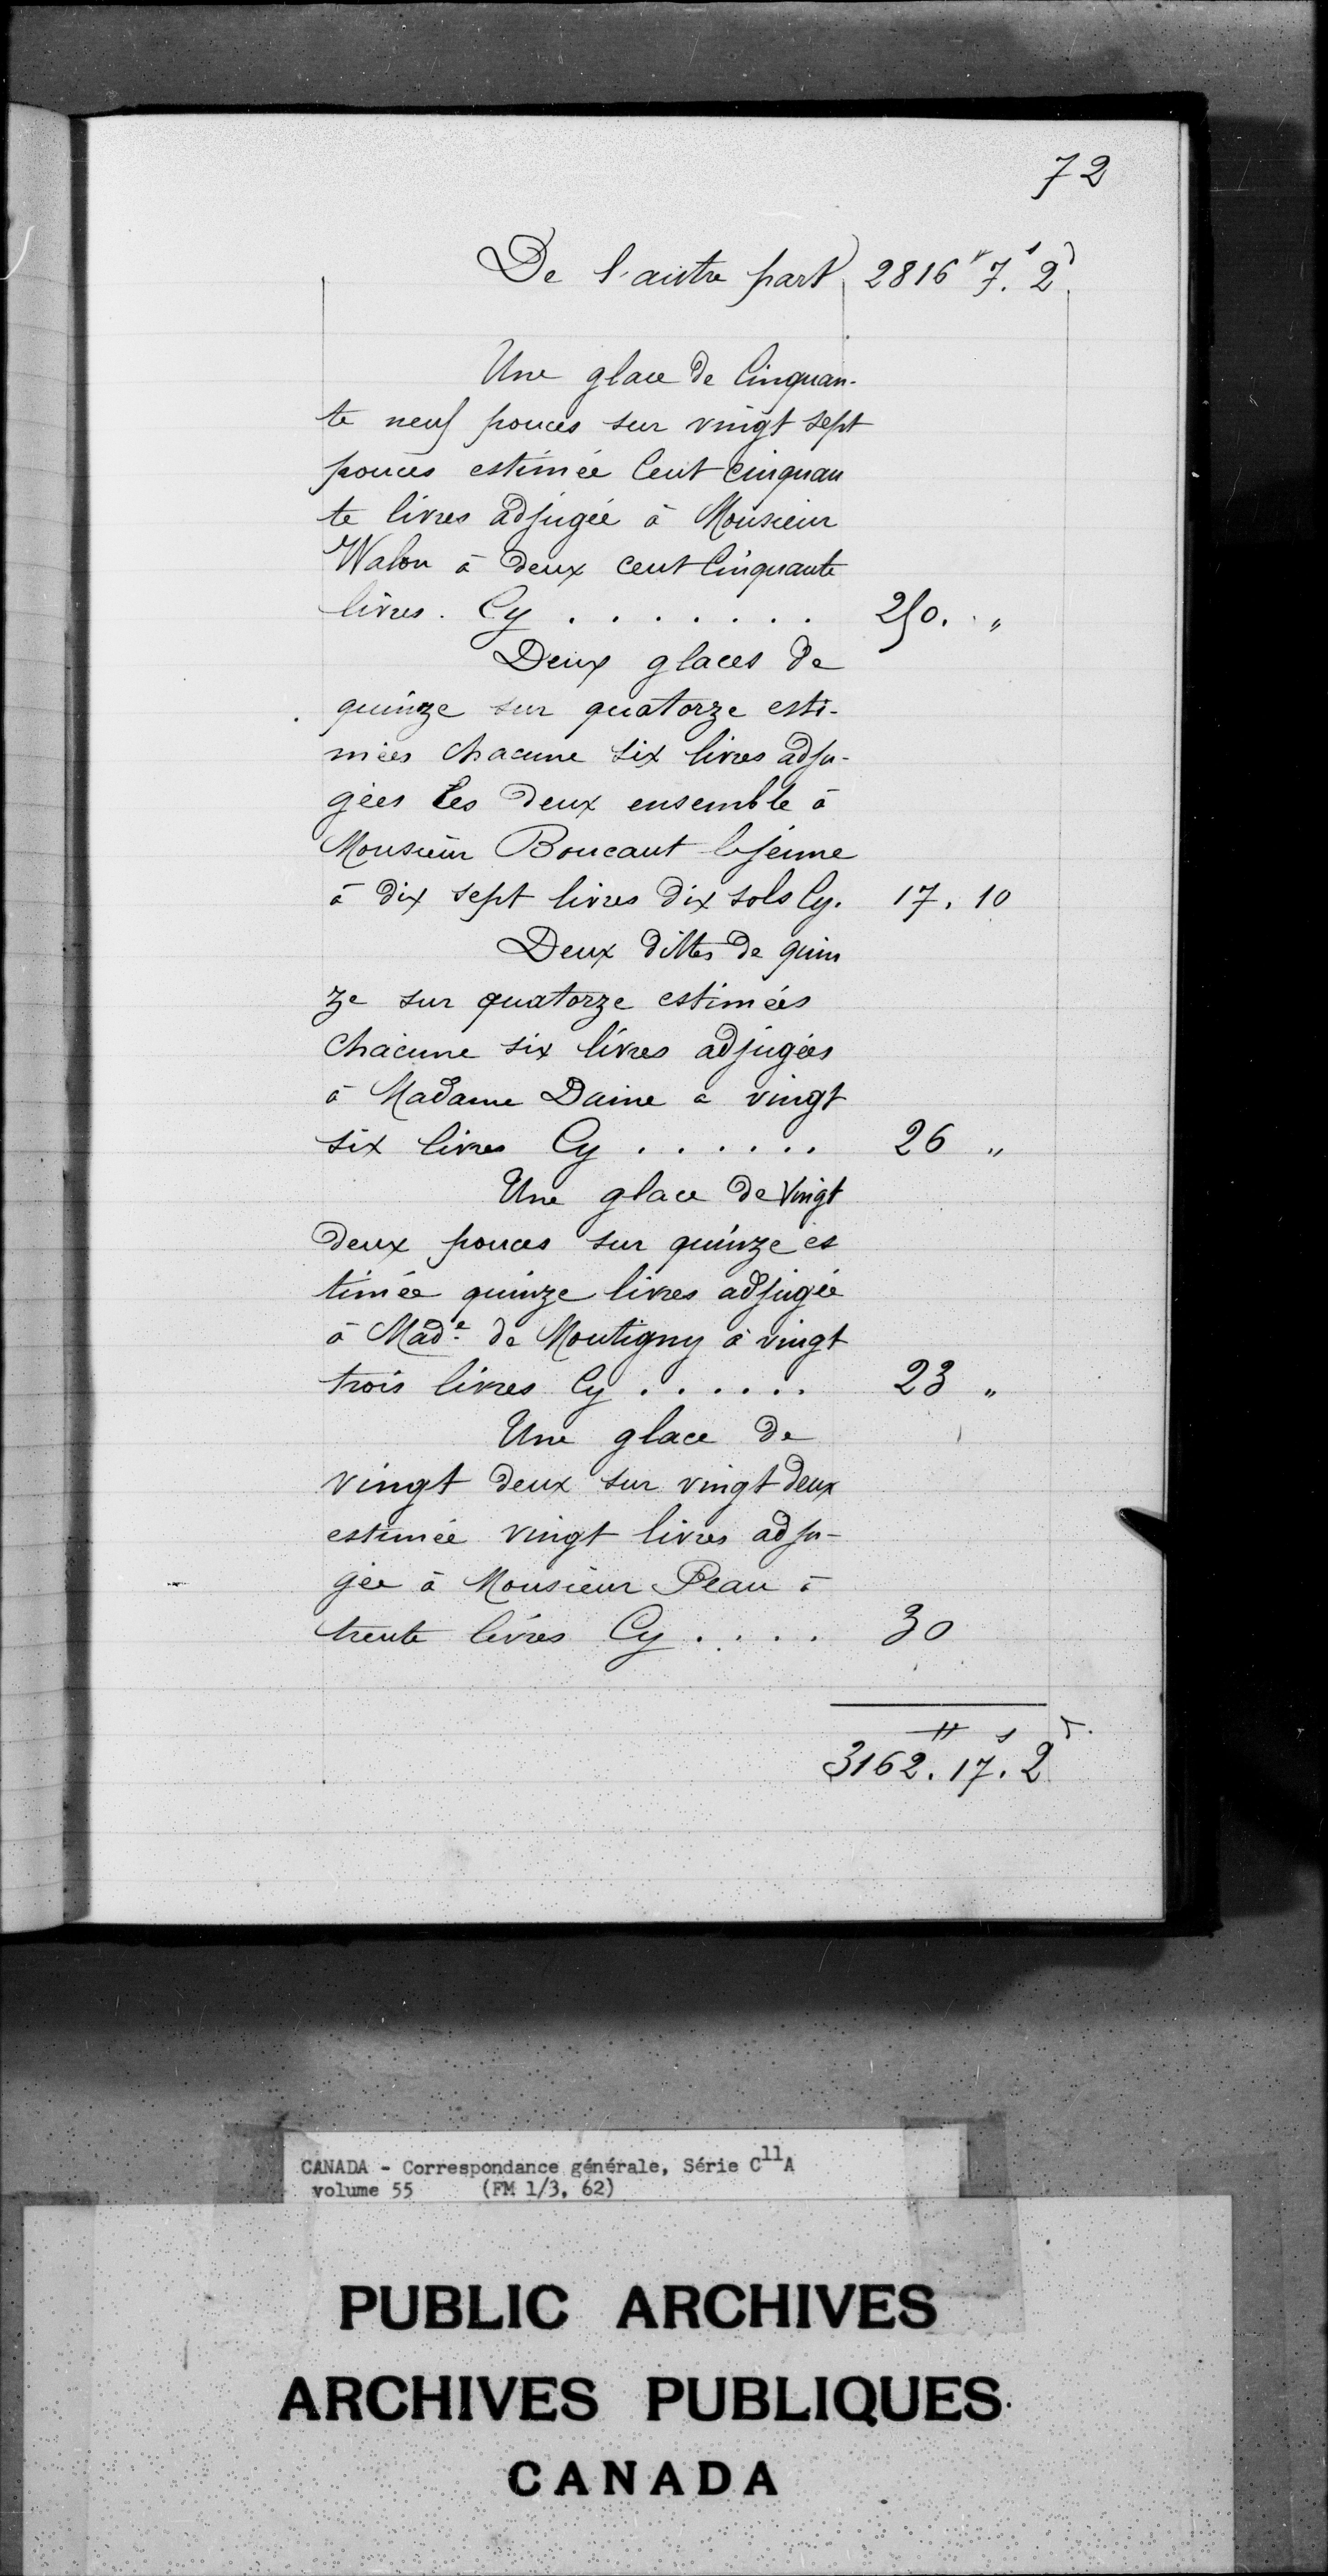 72
De l'autre part 2816# 7s. 2d
Une glace de Cinquan-
te neuf pouces sur vingt sept
pouces estimée Cent cinquan
te livres adjugée à Monsieur
Walon à deux cent Cinquante
livres. Cy . . . . . . . 250. "
Deux glaces de
quinze sur quatorze esti-
mées chacune six livres adju-
gées les deux ensemble à
Monsieur Boucaut le jeune
à dix sept livres dix sols Cy. 17. 10
Deux dittes de quin
ze sur quatorze estimées
chacune six livres adjugées
à Madame Daine a vingt
six livres Cy . . . . . . 26 "
Une glace de Vingt
deux pouces sur quinze es
timée quinze livres adjugée
à Made. de Montigny à vingt
trois livres Cy . . . . . . 23 "
Une glace de
vingt deux sur vingt deux
estimée vingt livres adju-
gée à Monsieur Pean à
trente livres Cy . . . . 30
3162.# 17.s 2d.
CANADA - Correspondance générale, Série C11A
volume 55 (FM 1/3, 62)
PUBLIC ARCHIVES
ARCHIVES PUBLIQUES
CANADA